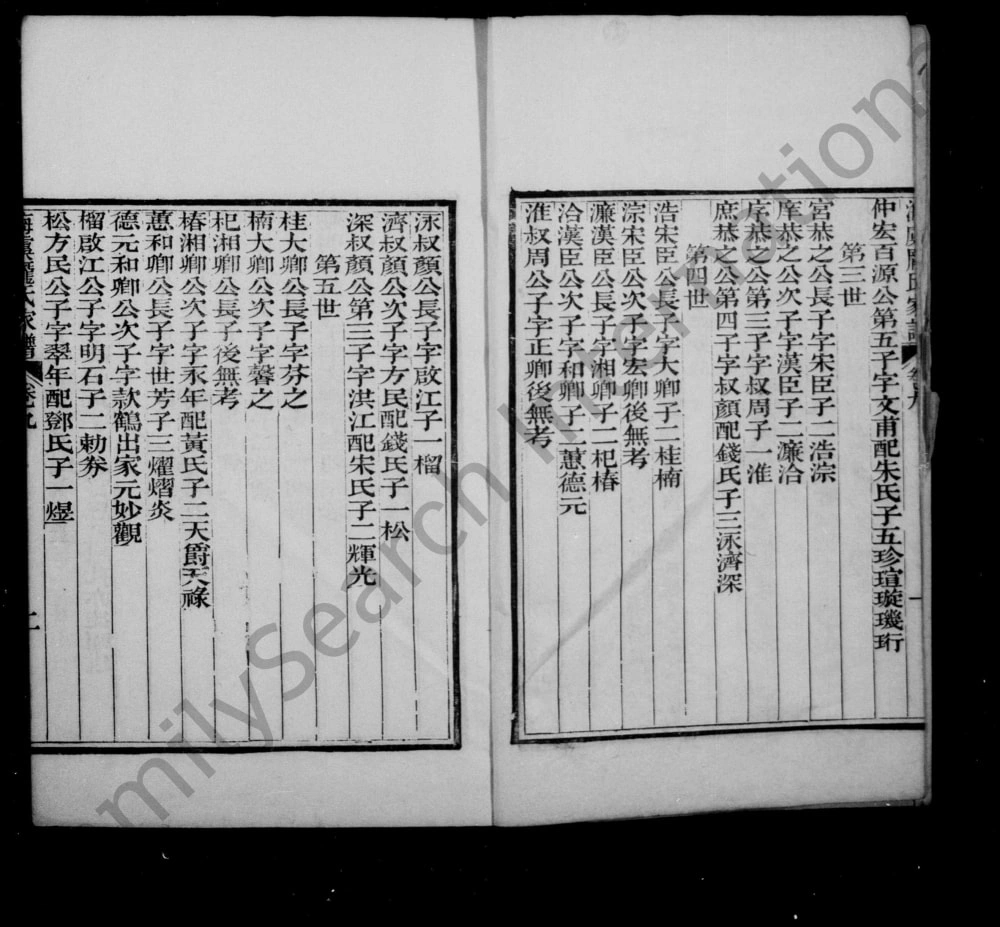 仲宏百源公第五子字文甫配朱氏子五珍瑄璇璣珩
第三世
宮恭之公長子字宋臣子二浩淙
庠恭之公次子字漢臣子二濂洽
序恭之公第三子字叔周子一淮
庶恭之公第四子字叔顏配錢氏子三泳濟深
第四世
浩宋臣公長子字大卿子二桂楠
淙宋臣公次子字宏卿後無考
濂漢臣公長子字湘卿子二杞椿
洽漢臣公次子字和卿子二蕙德元
淮叔周公子字正卿後無考
泳叔顏公長子字啟江子一榴
濟叔顏公次子字方民配錢氏子一松
深叔顏公第三子字洪江配朱氏子二輝光
第五世
桂大卿公長子字芬之
楠大卿公次子字馨之
杞湘卿公長子後無考
椿湘卿公次子字永年配黃氏子二天爵天祿
蕙和卿公長子字世芳子三燿熠炎
德元和卿公次子字款鶴出家元妙觀
榴啟江公子字明石子二勅券
松方民公子字翠年配鄧氏子一煜
氏家譜
卷九
二
一
FamilySearch International